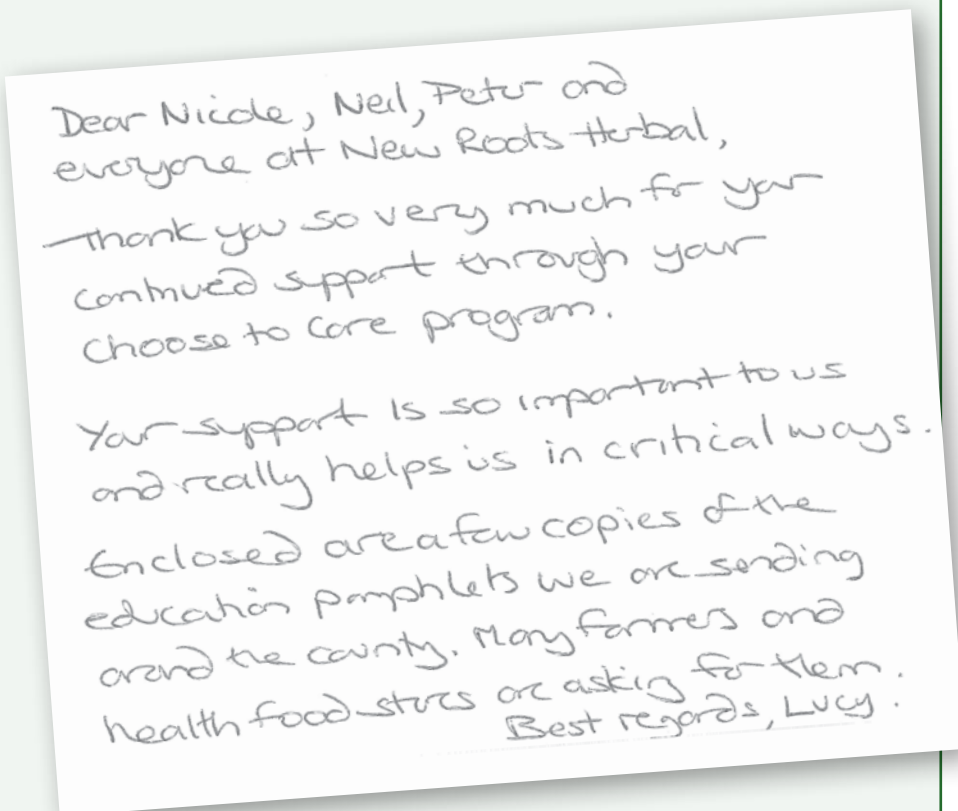 Dear Nicole, Neil, Peter and
everyone at New Roots Herbal,
Thank you so very much for your
continued support through your
Choose to Care program.
Your support is so important to us
and really helps us in critical ways.
Enclosed are a few copies of the
education pamphlets we are sending
around the county. Many farmers and
health food stores are asking for them.
Best regards, Lucy.